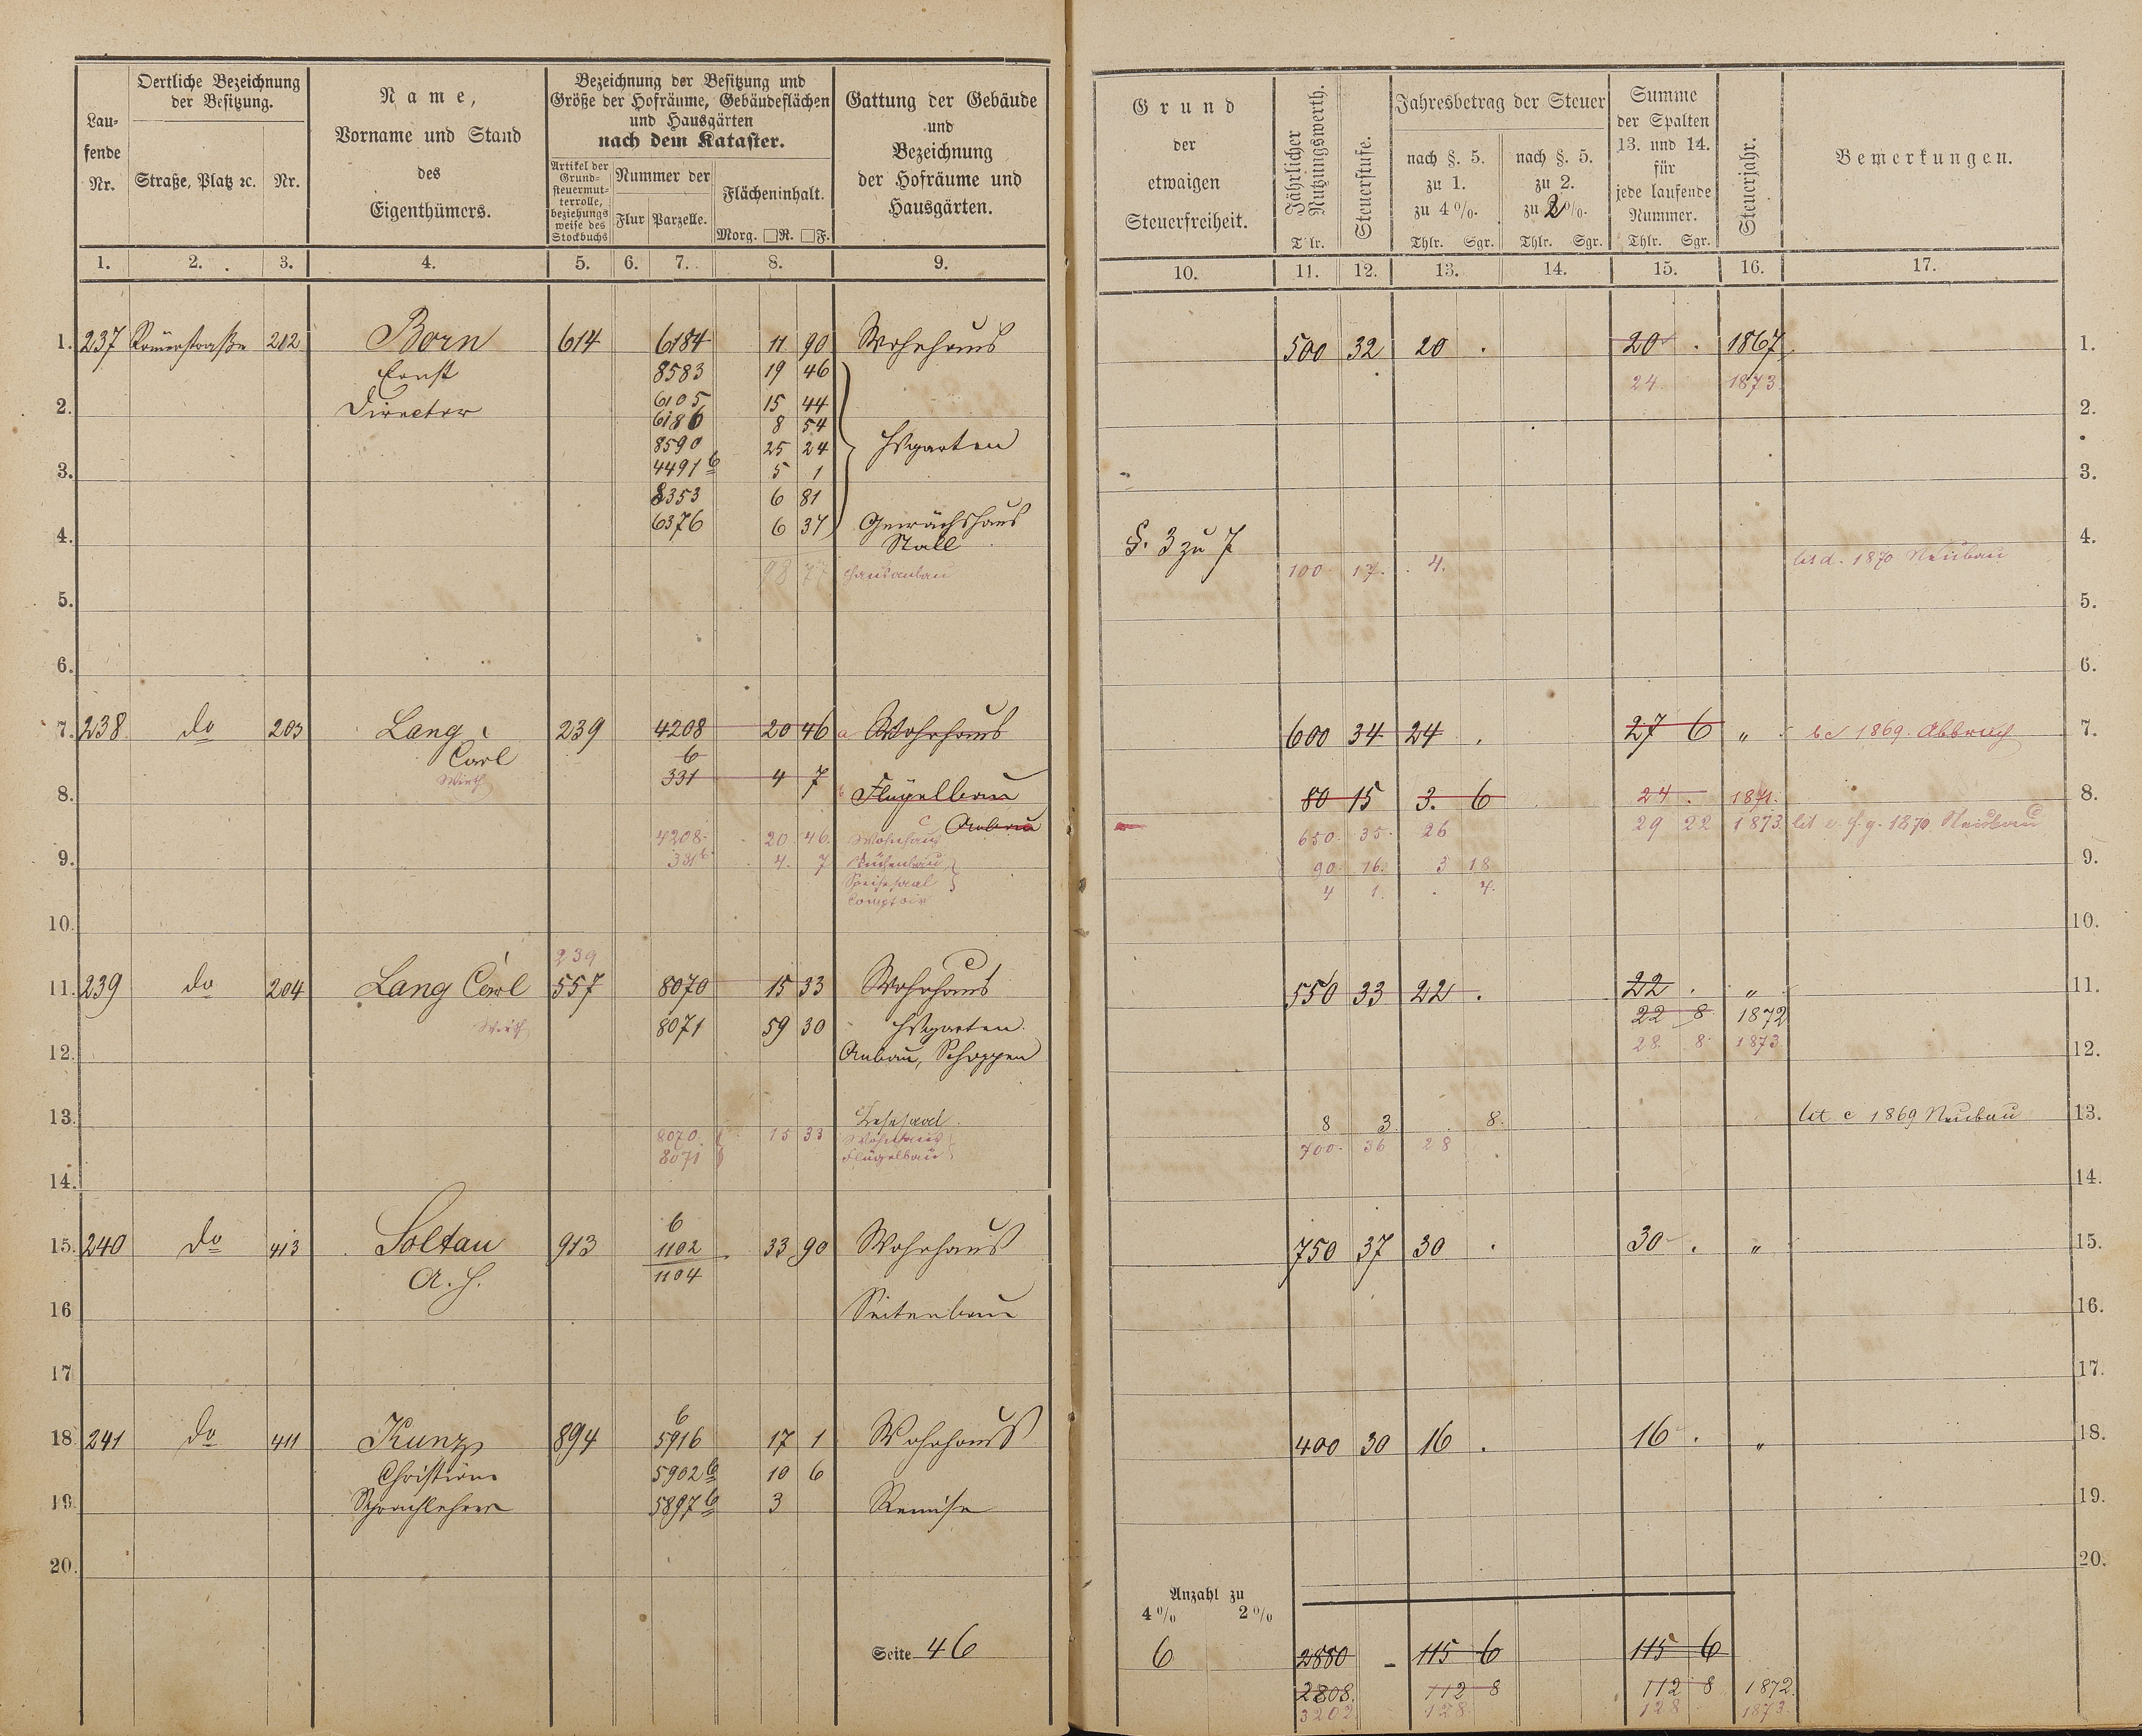 Lau-
fende
Nr.
Oertliche Bezeichnung
der Besitzung.
Straße, Platz ꝛc. Nr.
Name,
Vorname und Stand
des
Eigenthümers.
Bezeichnung der Besitzung und
Größe der Hofräume, Gebäudeflächen
und Hausgärten
nach dem Kataster.
Artikel der
Grund-
steuermut-
terrolle,
beziehungs
weise des
Stockbuchs
Nummer der
Flur Parzelle.
Flächeninhalt.
Morg. □R. □F.
Gattung der Gebäude
und
Bezeichnung
der Hofräume und
Hausgärten.
Grund
der
etwaigen
Steuerfreiheit.
Jährlicher
Nutzungswerth.
Tlr.
Steuerstufe.
Jahresbetrag der Steuer
nach §. 5.
zu 1.
zu 4 %.
Thlr. Sgr.
nach §. 5.
zu 2.
zu 2 %.
Thlr. Sgr.
Summe
der Spalten
13. und 14.
für
jede laufende
Nummer.
Thlr. Sgr.
Steuerjahr.
Bemerkungen.
1. 2. 3. 4. 5. 6. 7. 8. 9. 10. 11. 12. 13. 14. 15. 16. 17.
1. 237 Römerstraße 202 Born 614 6184 11 90 Wohnhaus 500 32 20 . 20 . 1867 1.
Ernst 8583 19 46 24 1873.
2. Director 6105 15 44 2.
6186 8 54
8590 25 24 Hsgarten
3. 4491 b 5 1 3.
8353 6 81
6376 6 37 Gewächshaus
4. Stall §. 3 zu 7 4.
98 77 Hausanbau 100 17. . 4. lit d. 1870 Neubau
5. 5.
6. 6.
7. 238 do 203 Lang 239 4208 20 46 a Wohnhaus 600 34 24 . 27 6 " bc 1869. Abbruch 7.
Carl 6
Wirth 331 4 7
8. b Flügelbau 80 15 3. 6 24 . 1871. 8.
c Anbau
4208. 20 46. Wohnhaus 650. 35. 26 29 22 1873. lit e. f. g. 1870. Neubau
9. 331 b 4. 7 Küchenbau 90. 16. 3 18 9.
Speisesaal 4 1. . 4.
Comptoir
10. 10.
239
11. 239 do 204 Lang Carl 557 8070 15 33 Wohnhaus 550 33 22 . 22 . " 11.
Wirth 8071 59 30 Hsgarten 22 8 1872
12. Anbau, Schoppen 28. 8. 1873. 12.
13. Lesesaal 8 3 . 8. lit. c 1869 Neubau 13.
8070. 15 33 Wohnhaus 700. 36 28 .
8071 Flügelbau
14. 14.
15. 240 do 413 Soltau 913 6 1102 33 90 Wohnhaus 750 37 30 . 30 . " 15.
A. H. 1104
16 Seitenbau 16.
17 17.
18. 241 do 411 Kunz 894 6 5916 17 1 Wohnhaus 400 30 16 . 16 . " 18.
Christian 5902 b 10 6
19. Sprachlehrer 5897 b 3 Remise 19.
20. 20.
Anzahl zu
4 % 2 %
Seite 46
6 2880 - 115 6 115 6
2808. 112 8 112 8 1872.
3202 128 128 1873.